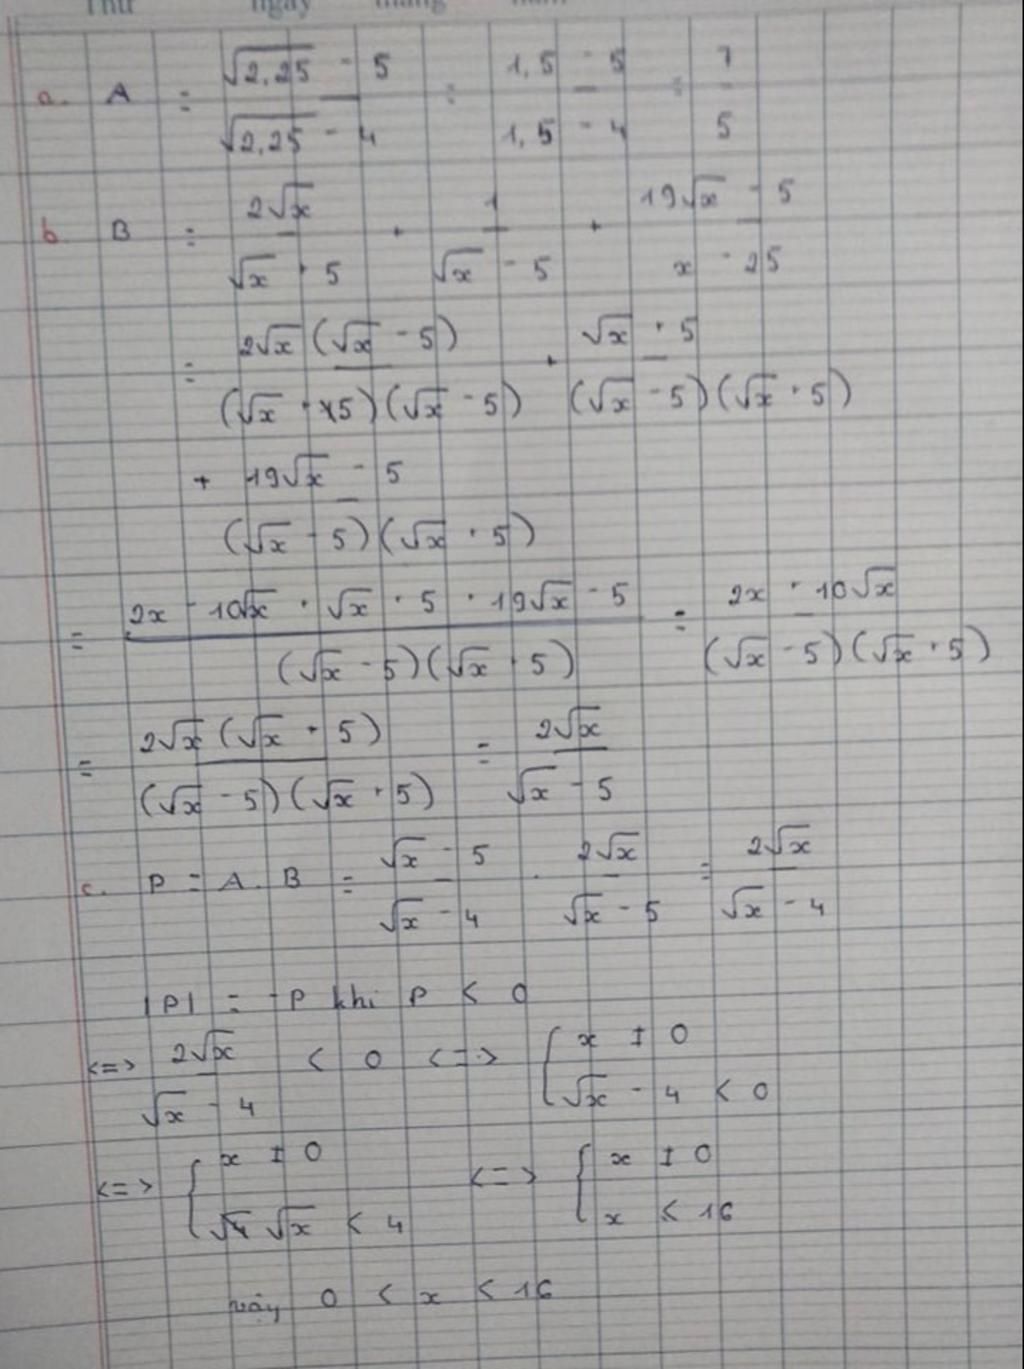 Thứ ngày tháng năm
a. A = (√2,25 - 5)/(√2,25 - 4) = (1,5 - 5)/(1,5 - 4) = 7/5
b B = 2√x/(√x + 5) + 1/(√x - 5) + (19√x - 5)/(x - 25)
= 2√x(√x - 5)/(√x + 5)(√x - 5) + (√x + 5)/(√x - 5)(√x + 5)
+ (19√x - 5)/(√x - 5)(√x + 5)
= (2x - 10√x + √x + 5 + 19√x - 5)/(√x - 5)(√x + 5) = (2x + 10√x)/(√x - 5)(√x + 5)
= 2√x(√x + 5)/(√x - 5)(√x + 5) = 2√x/(√x - 5)
c. P = A . B = (√x - 5)/(√x - 4) . 2√x/(√x - 5) = 2√x/(√x - 4)
|P| = -P khi P < 0
<=> 2√x/(√x - 4) < 0 <=> { x ≠ 0
√x - 4 < 0
<=> { x ≠ 0
√x < 4 <=> { x ≠ 0
x < 16
vậy 0 < x < 16